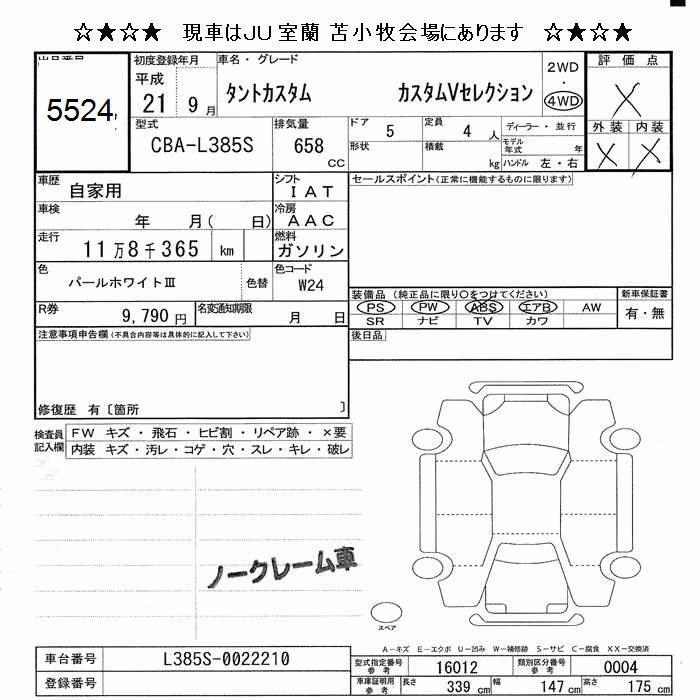 ☆★☆★ 現車はJU室蘭 苫小牧会場にあります ☆★☆★
出品番号
5524
初度登録年月
平成
21 9月
車名・グレード
タントカスタム カスタムVセレクション
2WD
・
4WD
評価点
X
外装 内装
X X
型式
CBA-L385S
排気量
658
CC
ドア
5
定員
4 人
ディーラー・並行
形状
積載
kg
モデル年式 年
ハンドル 左・右
車歴
自家用
シフト
IAT
セールスポイント(正常に機能するものに限ります)
車検
年 月( 日)
冷房
AAC
走行
11万8千365 km
燃料
ガソリン
色
パールホワイトⅢ
色替
色コード
W24
装備品(純正品に限り○をつけてください)
新車保証書
PS PW ABS エアB AW
有・無
SR ナビ TV カワ
R券
9,790円
名変通知期限
月 日
後日品
注意事項申告欄(不具合内容等は具体的に記入して下さい)
修復歴 有〔箇所 〕
検査員記入欄
FW キズ・飛石・ヒビ割・リペア跡・×要
内装 キズ・汚レ・コゲ・穴・スレ・キレ・破レ
ノークレーム車
スペア
A-キズ E-エクボ U-凹み W-補修跡 S-サビ C-腐食 XX-交換済
車台番号
L385S-0022210
型式指定番号
参考
16012
類別区分番号
参考
0004
登録番号
車庫証明用
参考
長さ
339 cm
幅
147 cm
高さ
175 cm